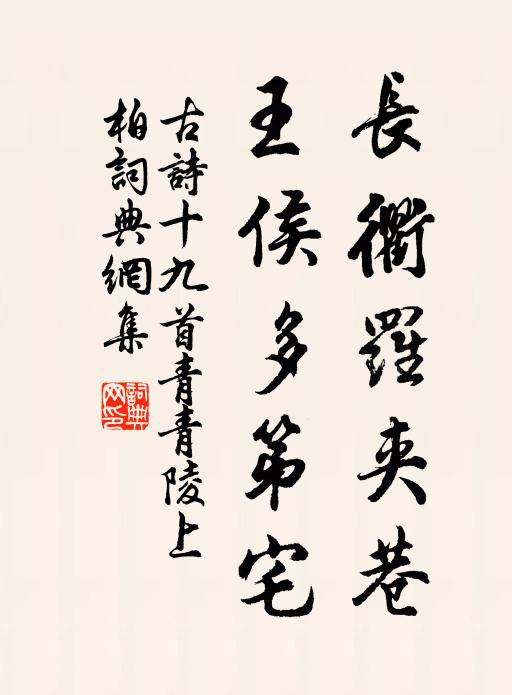 長衢羅夾巷
王侯多第宅
古詩十九首青青陵上
柏詞典網集
詞典
网印